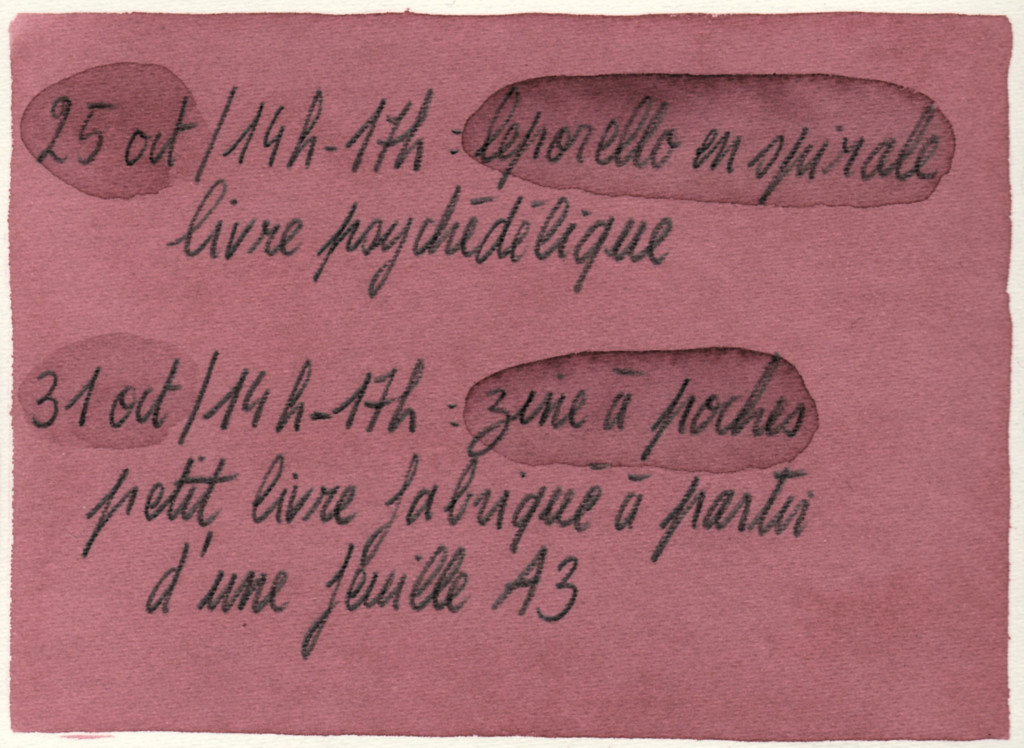 25 oct / 14h-17h : leporello en spirale
livre psychédélique
31 oct / 14h-17h : zine à poches
petit livre fabriqué à partir
d'une feuille A3